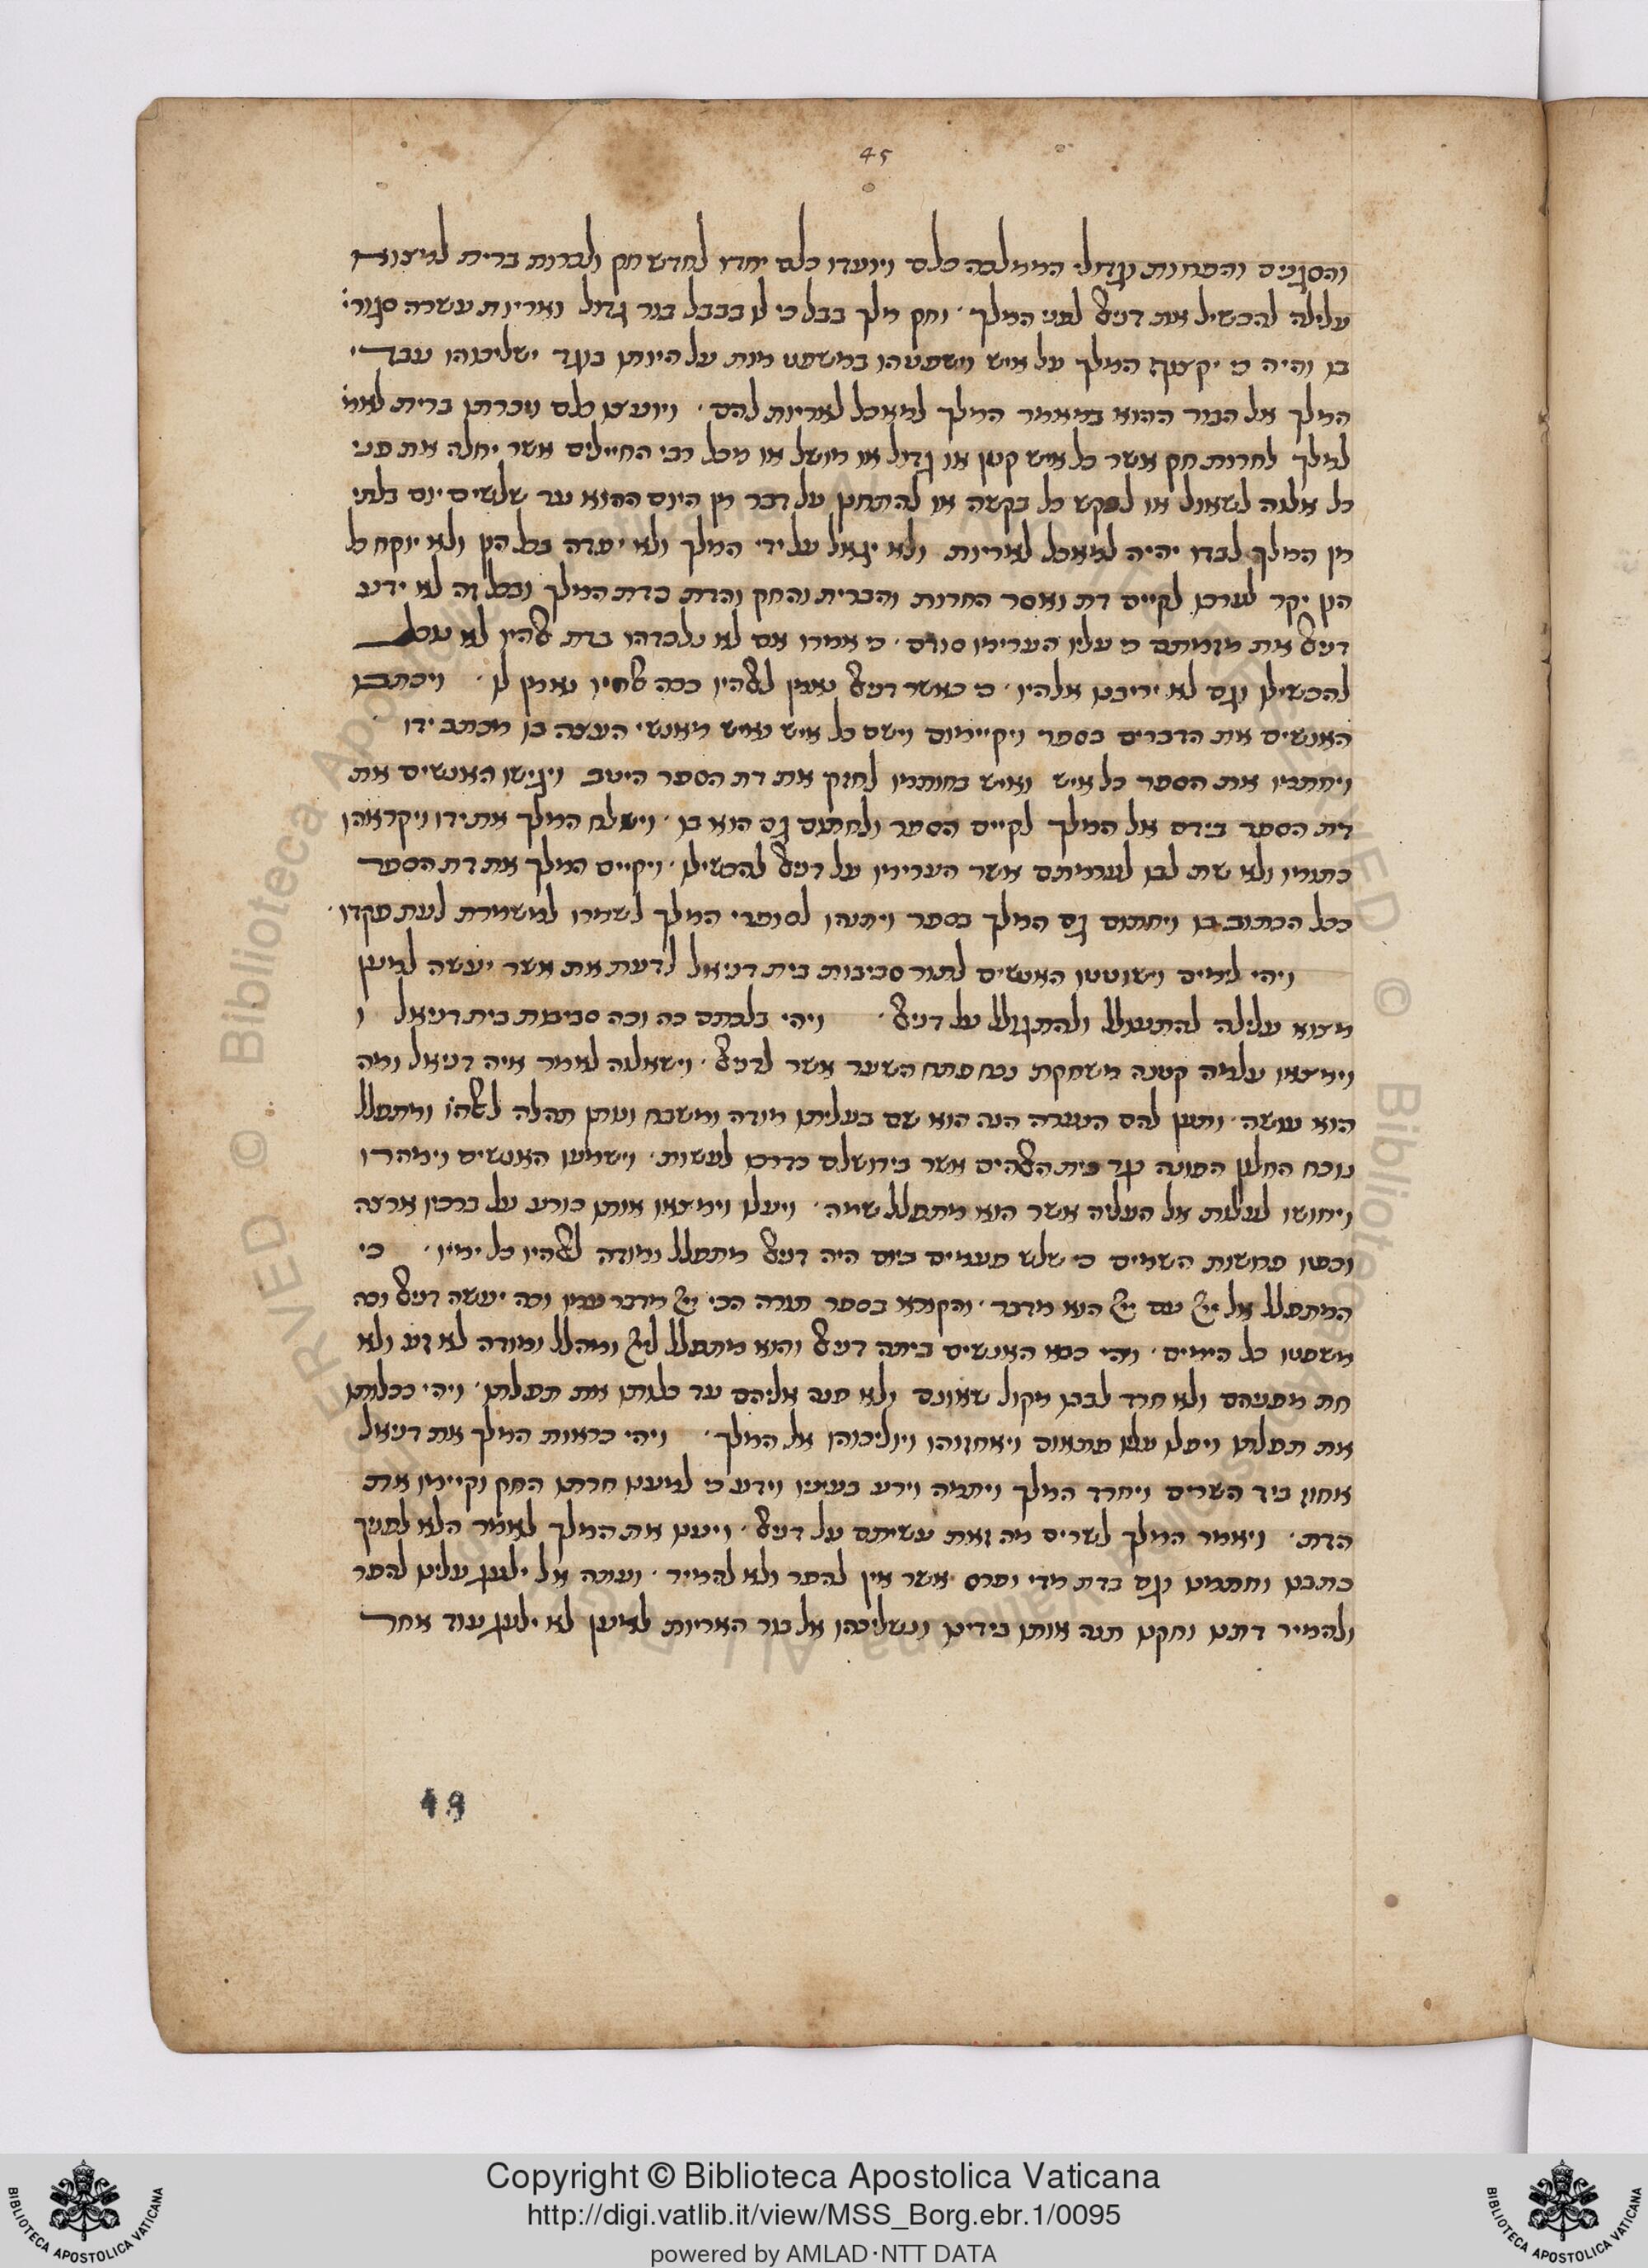 45
והסגנים והפחות וגדולי הממלכה כלם ויועדו כלם יחדו לחדש חק ולכרות ברית למצוא
עלילה להכשיל את דניאל לפני המלך ׳ וחק מלך בבל כי לו בבבל בור גדול ואריות עשרה סגורי׳
בו והיה כי יקצוף המלך על איש וישפטהו במשפט מות על היותו בוגד ישליכוהו עבדי
המלך אל הבור ההוא במאמר המלך למאכל לאריות להם ׳ ויועצו כלם ויכרתו ברית לאמ׳
למלך לחרות חק אשר כל איש קטן או גדול או מושל או מכל רבי החיילים אשר יחלה את פני
כל אלוה לשאול או לבקש כל בקשה או להתחנן על דבר מן היום ההוא עד שלשים יום בלתי
מן המלך לבדו יהיה למאכל לאריות ולא יגאל על ידי המלך ולא יפדה בכל הון ולא יוקח כל
הון יקר לערכו לקיים דת ואסר החרות והברית והחק והדת כדת המלך ובכל זה לא ידע
דניאל את מזמתם כי עליו הערימו סודם ׳ כי אמרו אם לא נלכדהו בדת אלהיו לא נוכל
להכשילו וגם לא יריבנו אלהיו ׳ כי כאשר דניאל נאמן לאלהיו ככה אלהיו נאמן לו ׳ ויכתבו
האנשים את הדברים בספר ויקיימום וישם כל איש ואיש מאנשי העצה בו מכתב ידו ׳
ויחתמו את הספר כל איש ואיש בחותמו לחזק את דת הספר היטב ויגישו האנשים את
דת הספר בידם אל המלך לקיים הספר ולחתום גם הוא בו ׳ וישלח המלך את ידו ויקראהו
כתומו ולא שת לבו לערמתם אשר הערימו על דניאל להכשילו ׳ ויקיים המלך את דת הספר
ככל הכתוב בו ויחתום גם המלך בספר ויתנהו לסופרי המלך לשמרו למשמרת לעת פקדו ׳
ויהי לימים וישוטטו האנשים לתור סביבות בית דניאל לדעת את אשר יעשה למען
מצוא עלילה להתעולל ולהתגולל על דניאל ׳ ויהי בלכתם כה וכה סביבות בית דניאל ו
וימצאו עלמה קטנה משחקת נכח פתח השער אשר לדניאל ׳ וישאלוה לאמר איה דניאל ומה
הוא עושה ׳ ותען להם הנערה הנה הוא שם בעליתו מודה ומשבח ונותן תהלה לאלהיו ומתפלל
נוכח החלון הפונה נגד בית האלהים אשר בירושלם כדרכו לעשות ׳ וישמעו האנשים וימהרו
ויחושו לעלות אל העליה אשר הוא מתפלל שמה ׳ ויעלו וימצאו אותו כורע על ברכיו ארצה
וכפיו פרושות השמים כי שלש פעמים ביום היה דניאל מתפלל ומודה לאלהיו כל ימיו ׳ כי
המתפלל אל ייי עם ייי הוא מדבר ׳ והקורא בספר תורה הכי ייי מדבר עמו וכה יעשה דניאל וכה
משפטו כל הימים ׳ ויהי כבוא האנשים ביתה דניאל והוא מתפלל לייי ומהלל ומודה לא זע ולא
חת מפניהם ולא חרד לבבו מקול שאונם ולא פנה אליהם עד כלותו את תפלתו ׳ ויהי ככלותו
את תפלתו ויפלו עליו פתאום ויאחזוהו ויוליכוהו אל המלך ׳ ויהי כראות המלך את דניאל
אחוז ביד השרים ויחרד המלך ויתמה וירע בעיניו וידע כי למענו חרתו החק וקיימו את
הדת ׳ ויאמר המלך לשרים מה זאת עשיתם על דניאל ׳ ויענו את המלך לאמר הלא לפניך
כתבנו וחתמנו וגם בדת מדי ופרס אשר אין להפר ולא להמיר ׳ ועתה אל ילעג עלינו להפר
ולהמיר דתנו וחקנו תנה אותו בידינו ונשליכהו אל בור האריות למען לא ילעג עוד אחד
49
Copyright © Biblioteca Apostolica Vaticana
http://digi.vatlib.it/view/MSS_Borg.ebr.1/0095
powered by AMLAD·NTT DATA